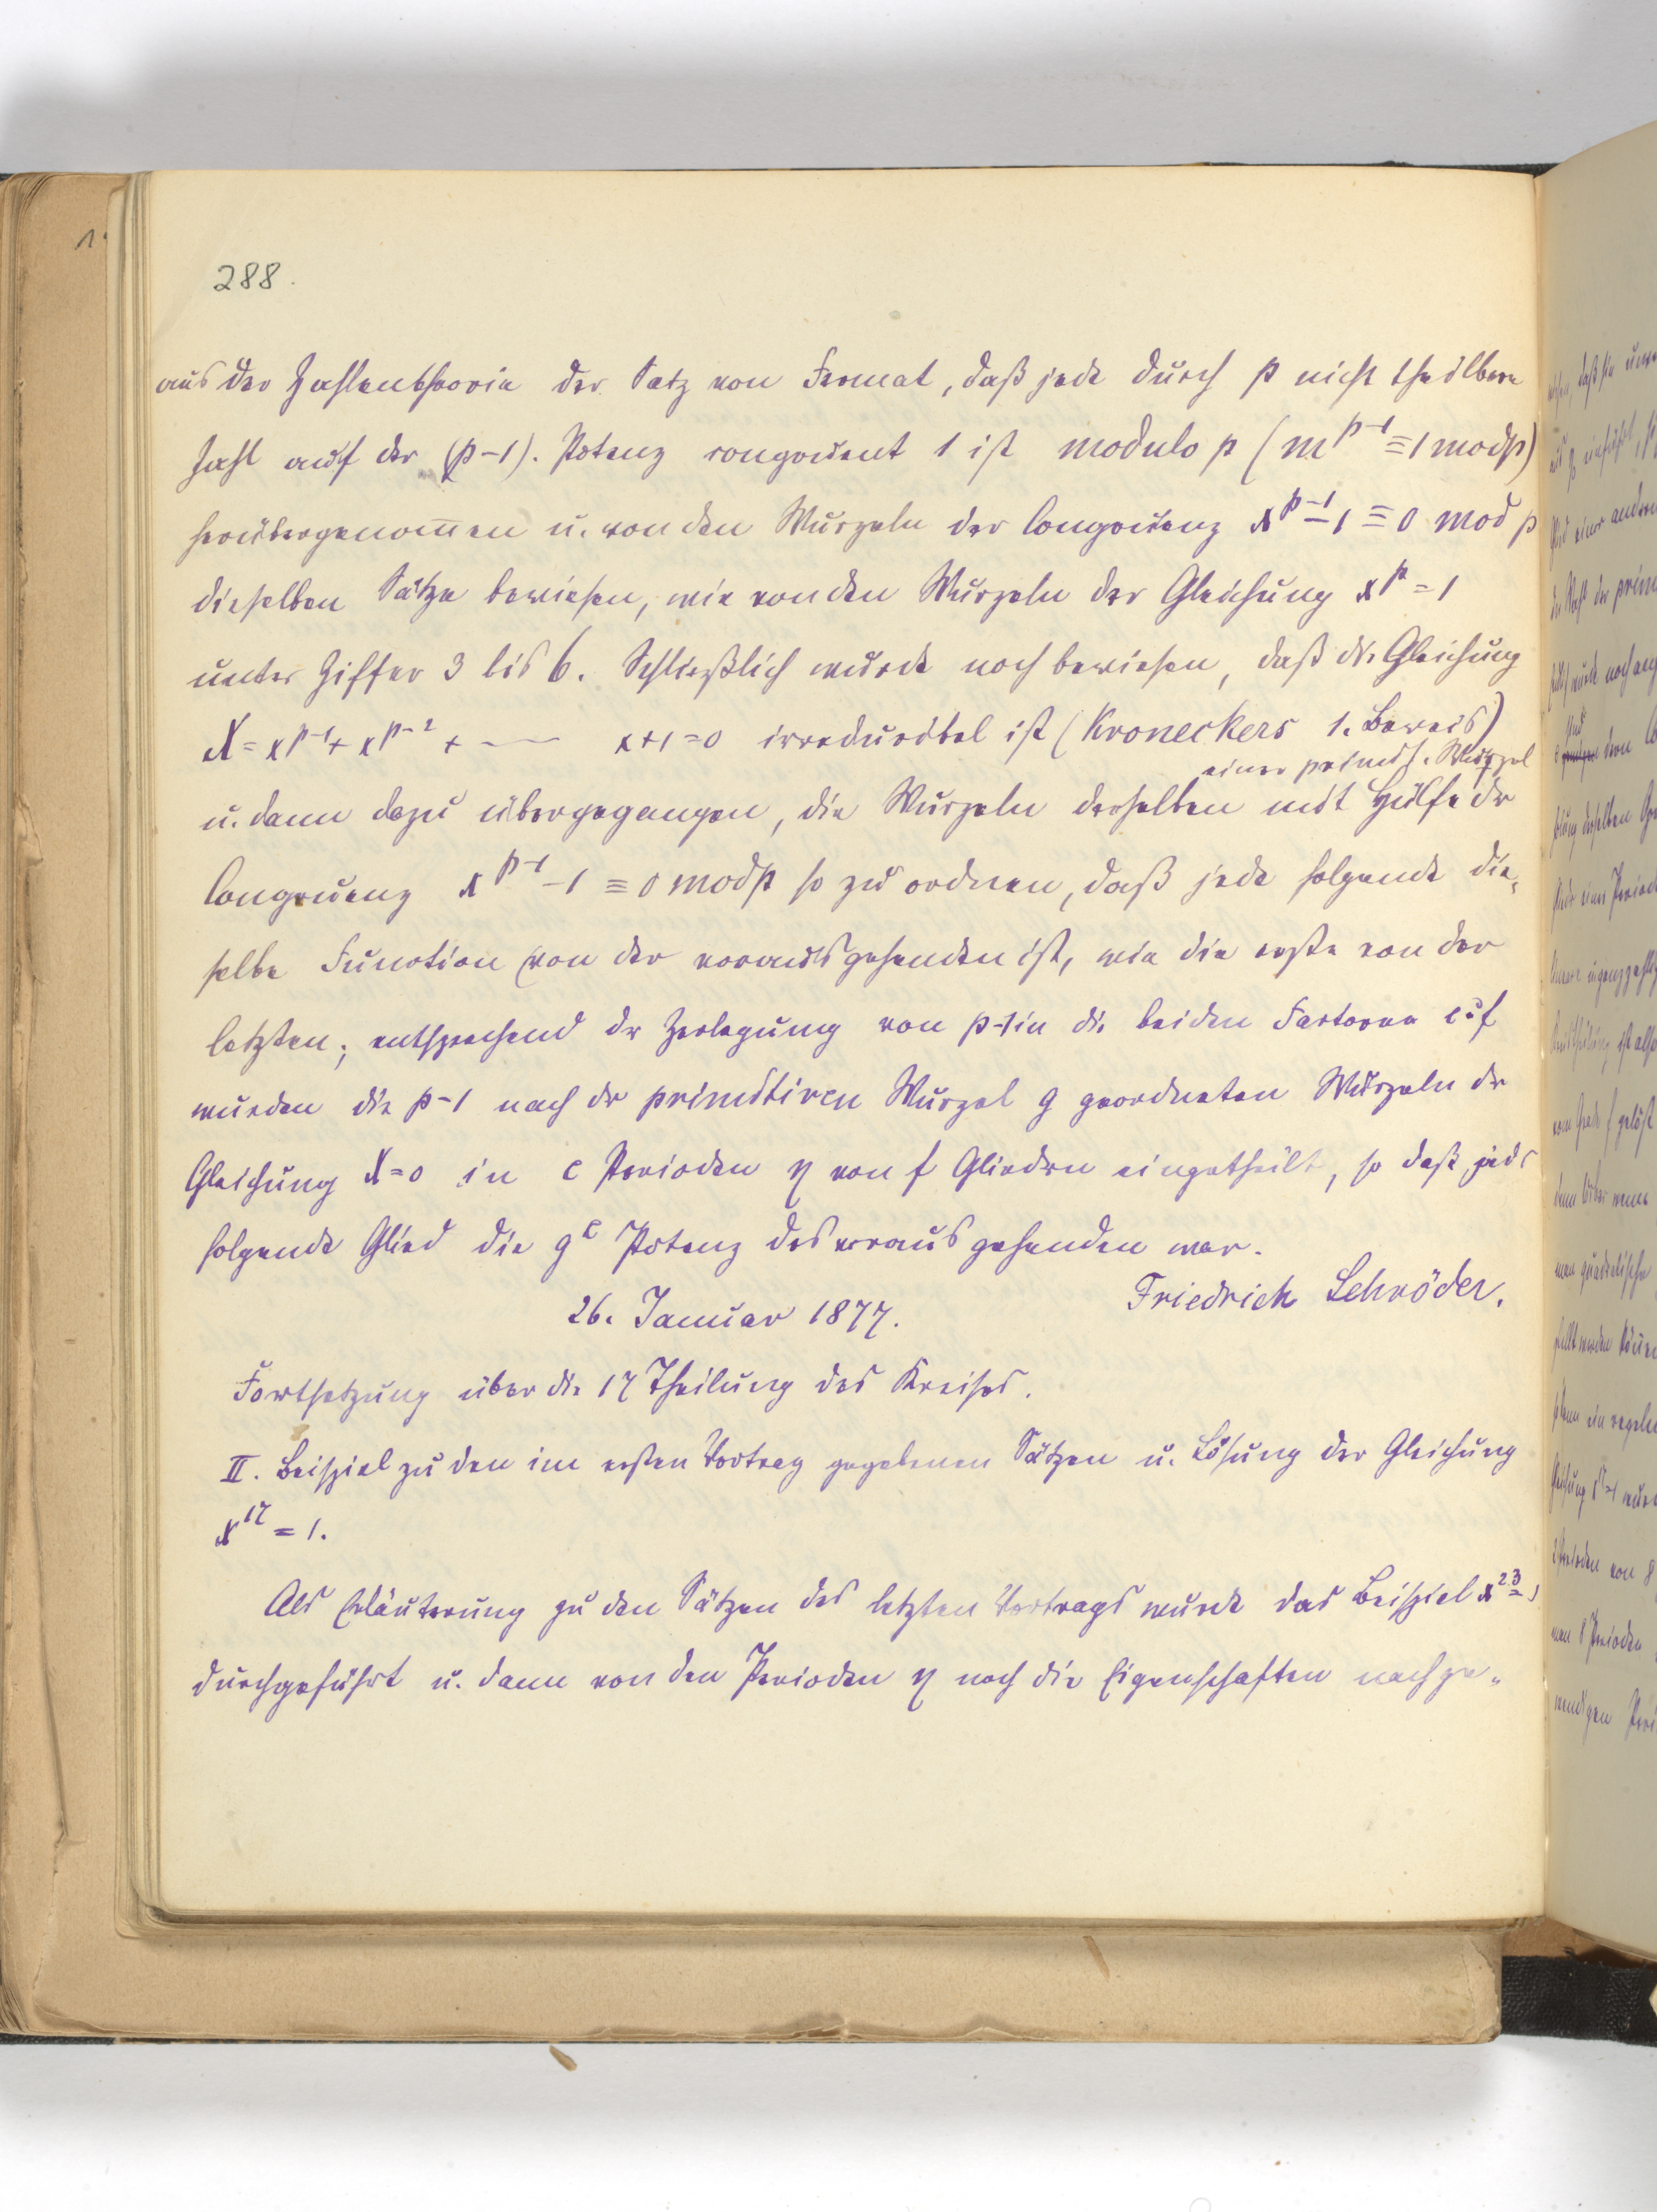 288.
aus der Zahlentheorie der Satz von Fermat, daß jede durch p nicht theilbare
Zahl auf der (p-1). Potenz congruent 1 ist modulo p (m^{p-1} ≡ 1 mod p)
herübergenommen u. von den Wurzeln der Congruenz x^{p-1} - 1 ≡ 0 mod p
dieselben Sätze bewiesen, wie von den Wurzeln der Gleichung x^p = 1
unter Ziffer 3 bis 6. Schließlich wurde noch bewiesen, daß die Gleichung
X = x^{p-1} + x^{p-2} + ---- x+1=0 irreducibel ist (Kroneckers 1. Beweis)
einer primit. Wurzel
u. dann dazu übergegangen, die Wurzeln derselben mit Hülfe der
Congruenz x^{p-1} - 1 ≡ 0 mod p so zu ordnen, daß jede folgende die-
selbe Function von der vorausgehenden ist, wie die erste von der
letzten; entsprechend der Zerlegung von p-1 in die beiden Factoren e·f
wurden die p-1 nach der primitiven Wurzel g geordneten Wurzeln der
Gleichung X=0 in e Perioden η von f Gliedern eingetheilt, so daß jedes
folgende Glied die g^e Potenz des vorausgehenden war.
Friedrich Schröder.
26. Januar 1877.
Fortsetzung über die 17 Theilung des Kreises.
II. Beispiel zu den im ersten Vortrag gegebenen Sätzen u. Lösung der Gleichung
x^{17} = 1.
Als Erläuterung zu den Sätzen des letzten Vortrags wurde das Beispiel x^{23} = 1
durchgeführt u. dann von den Perioden η noch die Eigenschaften nachge-